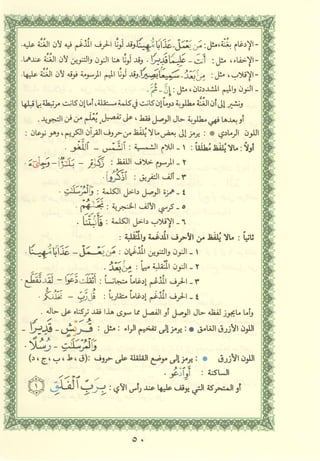 - الإدغام بغنّة، مثل: مَن يَعْمَل - عَذَابًا مُّهِينًا وقد لَوَّنّا الحرف المُدغَم فيه لأن الغُنّة عليه.
- الإخفاء، مثل: أَنتَ - عَلِيمًا قَدِيرًا. وقد لَوَّنّا هنا النون والتنوين لأن الغُنّة عندهما.
- الإقلاب، مثل: مِنۢ بَعْدِ - سَمِيعًۢا بَصِيرًا وقد لَوَّنّا الميم المرسومة فوقه لأن الغُنّة عليها.
- النون والميم المشددتان، مثل:
ونشير إلى أن الغُنّة مطلوبة دوماً إن كانت في كلمة مستقلة، أما إن كانت مرتبطة بما قبلها
أو بعدها فهي مطلوبة حال الوصل فقط، على تفصيل في فن التجويد.
اللون الرمادي : يرمز إلى بعض مالا يُلفَظ من حروف القرآن الكريم، وهو نوعان:
أولاً: مالا يُلفظ مطلقاً: ١ - اللام الشمسية:
٢ - المرسوم خلاف اللفظ:
٣ - ألف التفريق: اذْكُرُوا.
٤ - همزة الوصل داخل الكلمة: وَالْمُرْسَلَاتِ
٥ - كرسي الألف الخنجرية:
٦ - الإقلاب داخل الكلمة:
ثانياً: مالا يُلفظ من الأحرف المدغمة والمُقلَبة:
١ - النون والتنوين المُدغَمان: مَن يَعْمَل - عَذَابًا مُّهِينًا.
٢ - النون المُقلَبة ميماً: مِنۢ بَعْدِ.
٣ - الحرف المُدغَم إدغاماً متجانساً: أَثْقَلَت دَّعَوَا - لَقَد تَّقَطَّعَ.
٤ - الحرف المُدغَم إدغاماً متقارباً: قُل رَّبِّ -
وأما مايجوز لفظه حال الوصل أو الفصل مما سوى هذا فقد تركناه على حاله.
اللون الأزرق الغامق : يرمز إلى تفخيم الراء: مثل:
وَالْمُرْسَلَاتِ - رُسُلًا.
اللون الأزرق : يرمز إلى موضع القلقلة على حروف: (ق، ط، ب، ج، د)
الساكنة:
أو المتحركة التي يوقف عليها عند رأس الآي: بِرَبِّ الْفَلَقِ ١
٥٠